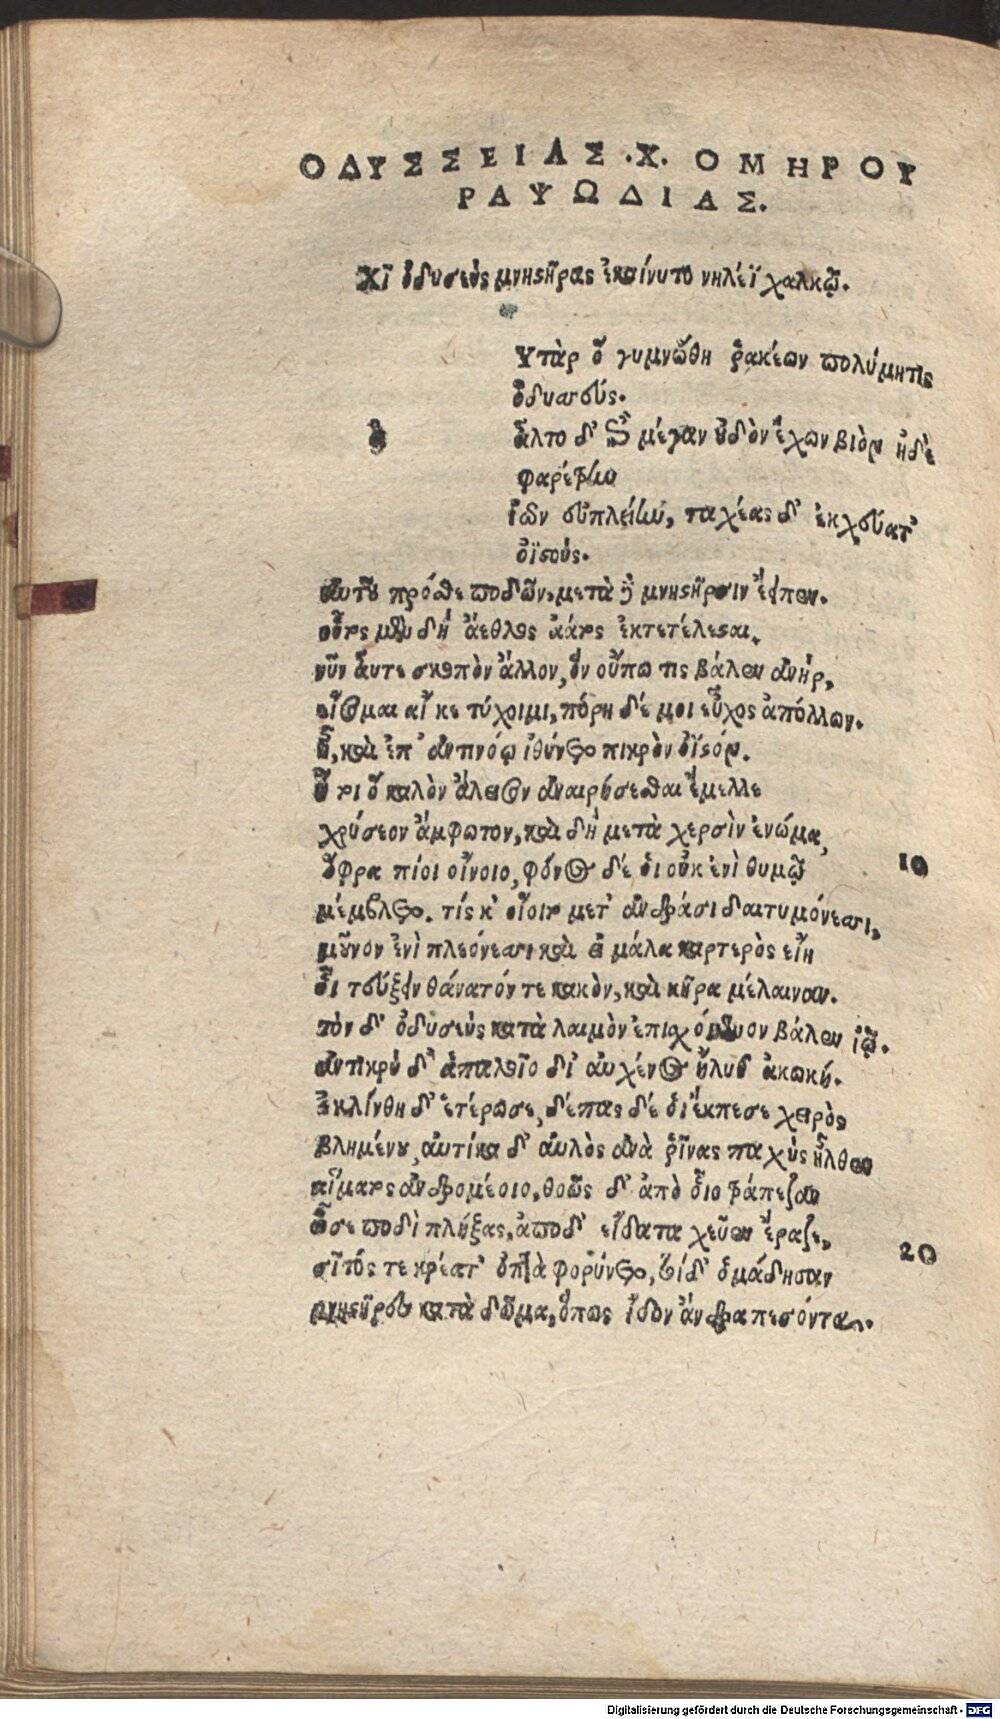 ΟΔΥΣΣΕΙΑΣ .Χ. ΟΜΗΡΟΥ
ΡΑΨΩΔΙΑΣ.
Χῖ ὀδυσεὺς μνηστῆρας ἐκαίνυτο νηλέϊ χαλκῷ.
Υτὰρ ὃ γυμνώθη ῥακέων πολύμητις
ὀδυσσεύς.
ἆλτο δ' ἐπὶ μέγαν οὐδὸν ἔχων βιὸν ἠδὲ
φαρέτρην
ἰῶν ἐμπλείην, ταχέας δ' ἐκχεύατ'
ὀϊστούς.
αὐτοῦ πρόσθε ποδῶν, μετὰ δὲ μνηστῆρσιν ἔειπεν.
οὗτος μὲν δὴ ἄεθλος ἀάατος ἐκτετέλεσται,
νῦν αὖτε σκοπὸν ἄλλον, ὃν οὔπω τις βάλεν ἀνήρ,
εἴσομαι αἴ κε τύχοιμι, πόρη δέ μοι εὖχος ἀπόλλων.
ἦ, καὶ ἐπ' ἀντινόῳ ἰθύνετο πικρὸν ὀϊστόν.
ἤ τοι ὃ καλὸν ἄλεισον ἀναιρήσεσθαι ἔμελλε
χρύσεον ἄμφωτον, καὶ δὴ μετὰ χερσὶν ἐνώμα,
ὄφρα πίοι οἴνοιο, φόνος δέ οἱ οὐκ ἐνὶ θυμῷ 10
μέμβλετο. τίς κ' οἴοιτο μετ' ἀνδράσι δαιτυμόνεσσι,
μοῦνον ἐνὶ πλεόνεσσι καὶ εἰ μάλα καρτερὸς εἴη
οἷ τεύξειν θάνατόν τε κακὸν, καὶ κῆρα μέλαιναν.
τὸν δ' ὀδυσεὺς κατὰ λαιμὸν ἐπισχόμενον βάλεν ἰῷ.
ἀντικρὺ δ' ἁπαλοῖο δι' αὐχένος ἤλυθ' ἀκωκή.
ἐκλίνθη δ' ἑτέρωσε, δέπας δέ οἱ ἔκπεσε χειρὸς
βλημένου, αὐτίκα δ' αὐλὸς ἀνὰ ῥῖνας παχὺς ἦλθεν
αἵματος ἀνδρομέοιο, θοῶς δ' ἀπὸ οἷο τράπεζαν
ὦσε ποδὶ πλήξας, ἀπὸ δ' εἴδατα χεῦεν ἔραζε, 20
σῖτός τε κρέατ' ὀπτὰ φορύνετο, τοὶ δ' ὁμάδησαν
μνηστῆρες κατὰ δῶμα, ὅπως ἴδον ἄνδρα πεσόντα.
Digitalisierung gefördert durch die Deutsche Forschungsgemeinschaft - DFG